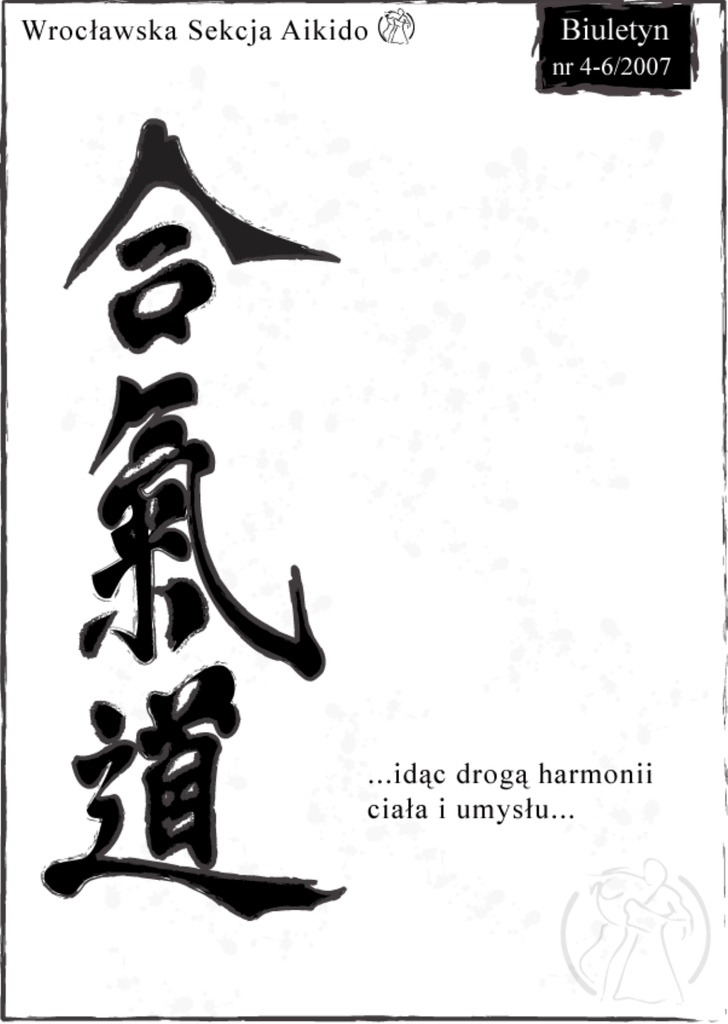 Wrocławska Sekcja Aikido
Biuletyn
nr 4-6/2007
合氣道
...idąc drogą harmonii
ciała i umysłu...